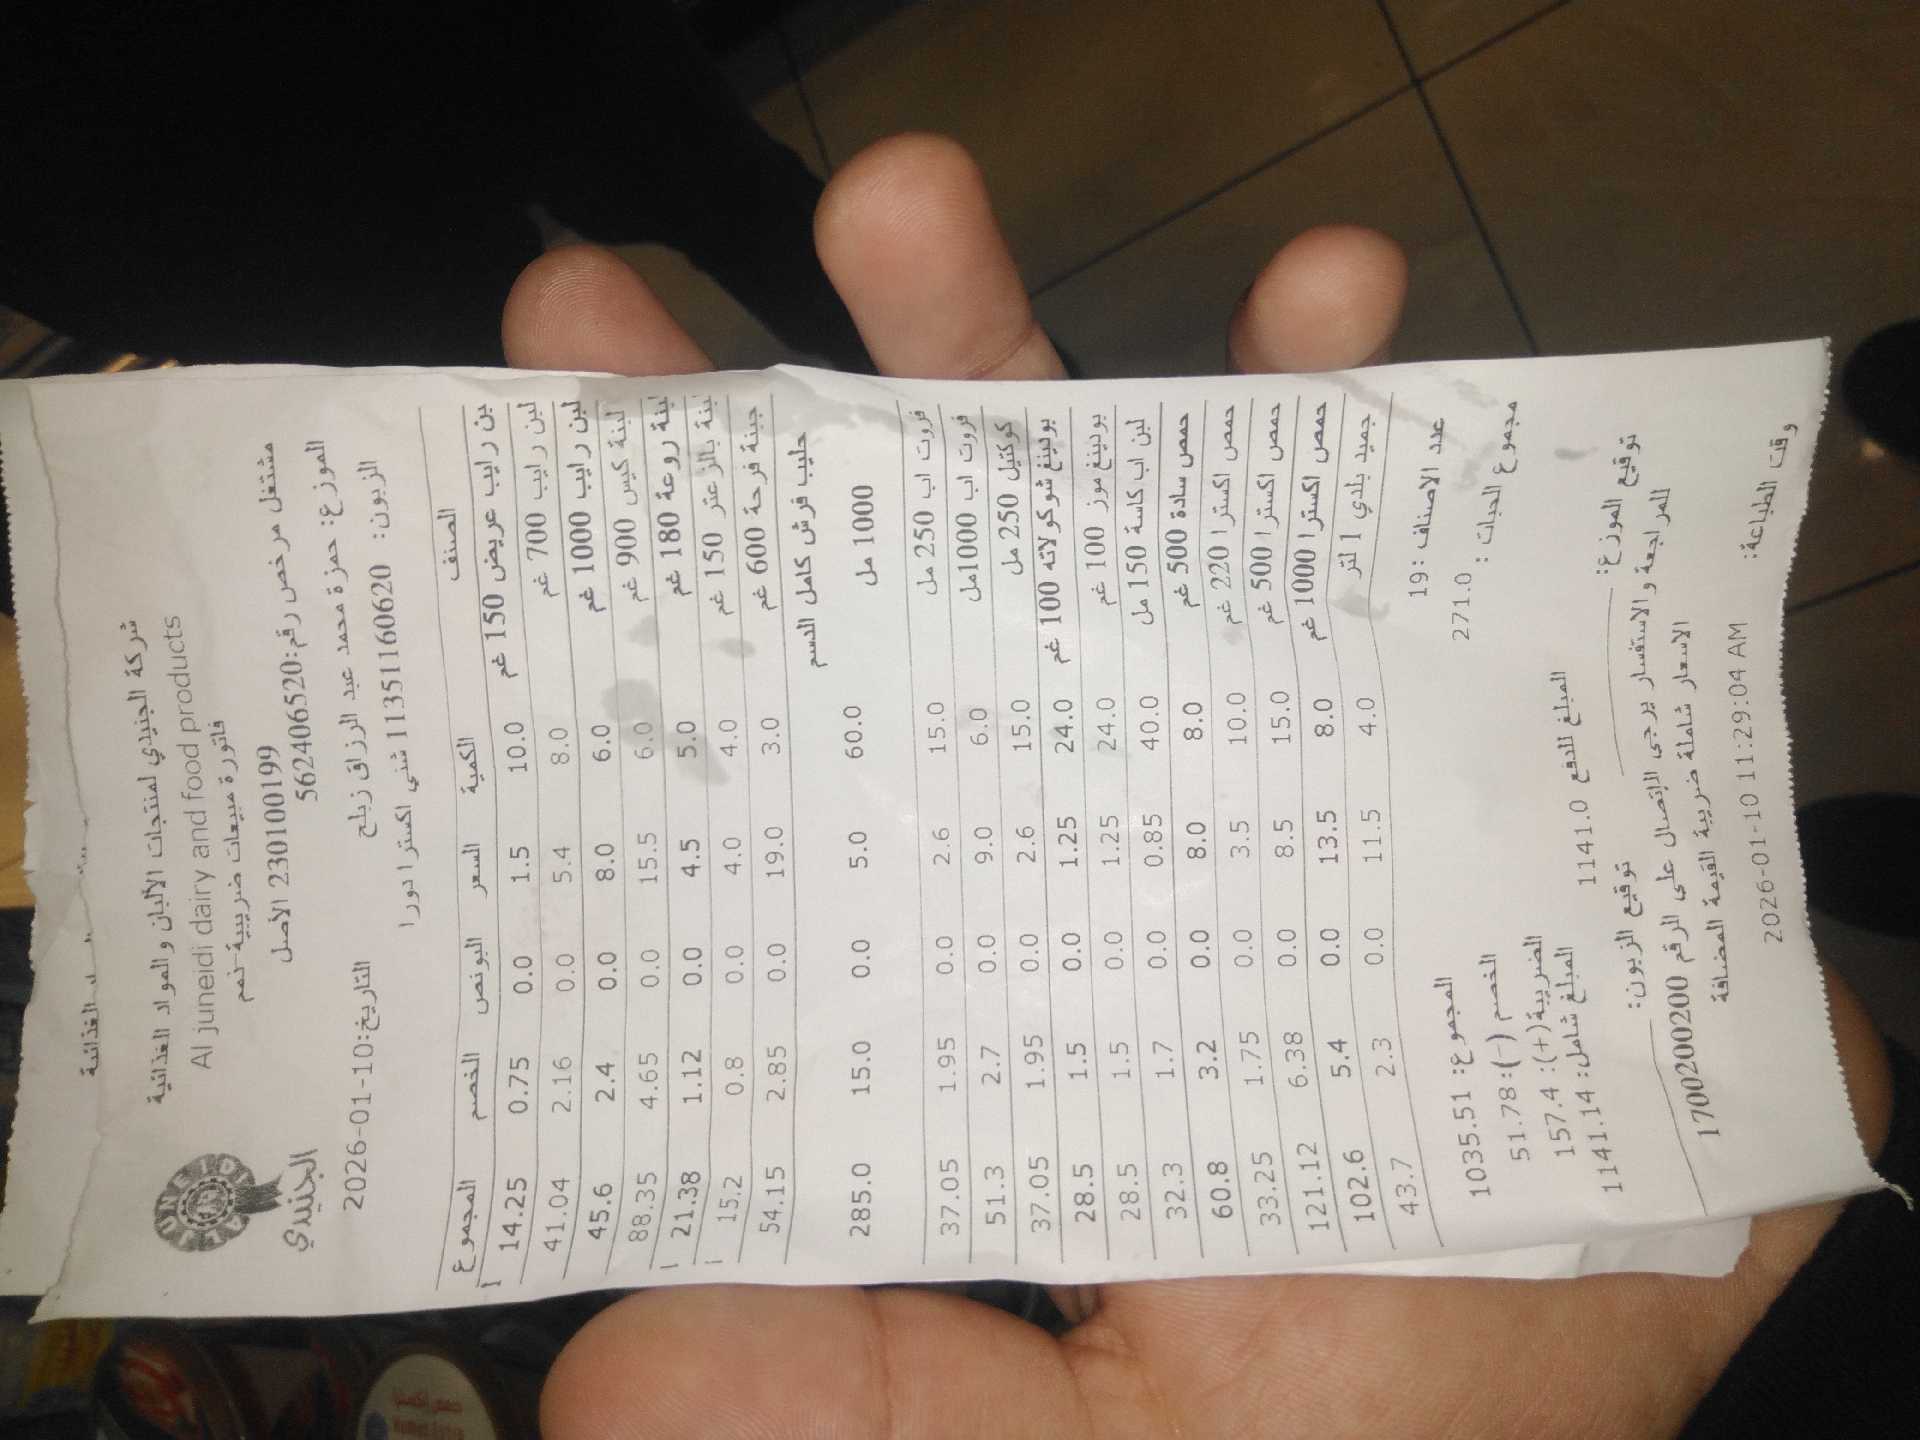 الغذائية
شركة الجنيدي لمنتجات الألبان والمواد الغذائية
Al juneidi dairy and food products
فاتورة مبيعات ضريبية-نمم
AL JUNEIDI
الجنيدي
مشتغل مرخص رقم:562406520
230100199 الأصل
الموزع: حمزة محمد عبد الرزاق زبلح
التاريخ:2026-01-10
الزبون: 1135116062 شني اكسترا دورا
الصنف الكمية السعر البونص الخصم المجموع
بن رايب عريض 150 غم 10.0 1.5 0.0 0.75 14.25
لبن رايب 700 غم 8.0 5.4 0.0 2.16 41.04
لبن رايب 1000 غم 6.0 8.0 0.0 2.4 45.6
لبنة كيس 900 غم 6.0 15.5 0.0 4.65 88.35
بنة روعة 180 غم 5.0 4.5 0.0 1.12 21.38
بنة بالزعتر 150 غم 4.0 4.0 0.0 0.8 15.2
جبنة فرحة 600 غم 3.0 19.0 0.0 2.85 54.15
حليب فرش كامل الدسم
1000 مل 60.0 5.0 0.0 15.0 285.0
فروت اب 250 مل 15.0 2.6 0.0 1.95 37.05
فروت اب 1000مل 6.0 9.0 0.0 2.7 51.3
كوكتيل 250 مل 15.0 2.6 0.0 1.95 37.05
بودينغ شوكولاته 100 غم 24.0 1.25 0.0 1.5 28.5
بودينغ موز 100 غم 24.0 1.25 0.0 1.5 28.5
لبن اب كاسة 150 مل 40.0 0.85 0.0 1.7 32.3
حمص سادة 500 غم 8.0 8.0 0.0 3.2 60.8
حمص اكسترا 220 غم 10.0 3.5 0.0 1.75 33.25
حمص اكسترا 500 غم 15.0 8.5 0.0 6.38 121.12
حمص اكسترا 1000 غم 8.0 13.5 0.0 5.4 102.6
جميد بلدي 1 لتر 4.0 11.5 0.0 2.3 43.7
عدد الاصناف :19 المجموع: 1035.51
مجموع الحبات : 271.0 الخصم (-): 51.78
الضريبة(+): 157.4
المبلغ للدفع 1141.0 المبلغ شامل: 1141.14
توقيع الموزع: توقيع الزبون:
للمراجعة والاستفسار يرجى الإتصال على الرقم 1700200200
الاسعار شاملة ضريبة القيمة المضافة
وقت الطباعة: 2026-01-10 11:29:04 AM